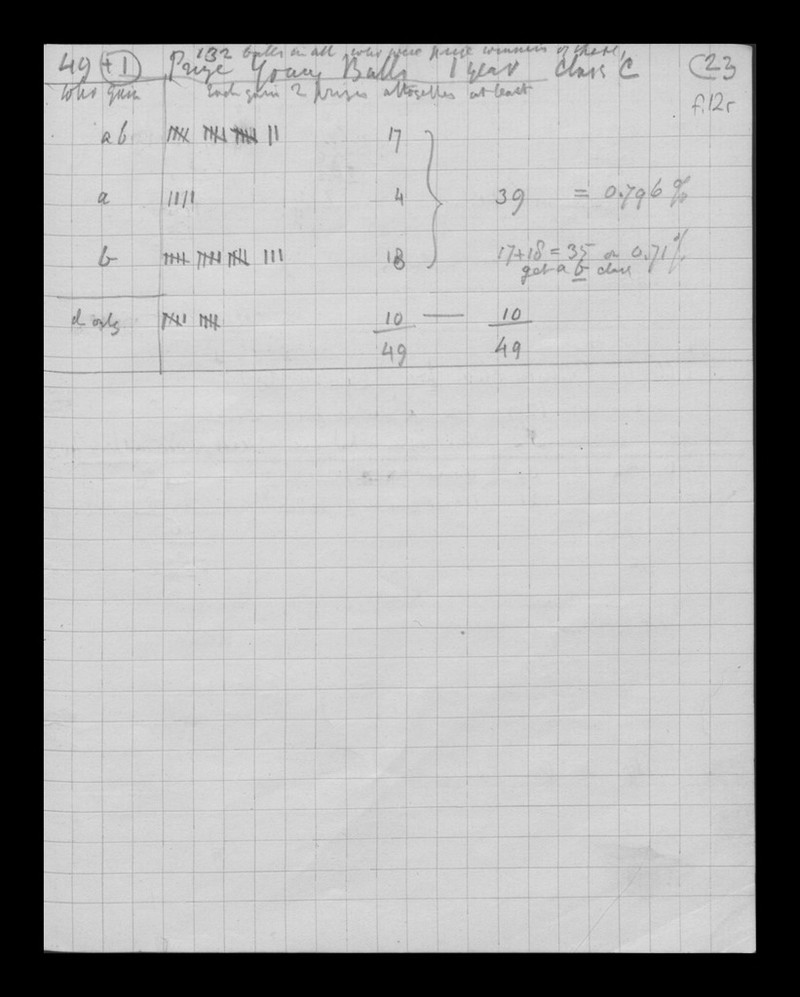 132 bulls in all who were prize winners of these
49 (+1) Prize Young Bulls 1 year class C (23
who gain Each gain 2 prizes altogether at least f.12r
ab 17
a 4 39 = 0.796 %
b 18 17+18 = 35 or 0.71 %
get a b class
d only 10 — 10
49 49